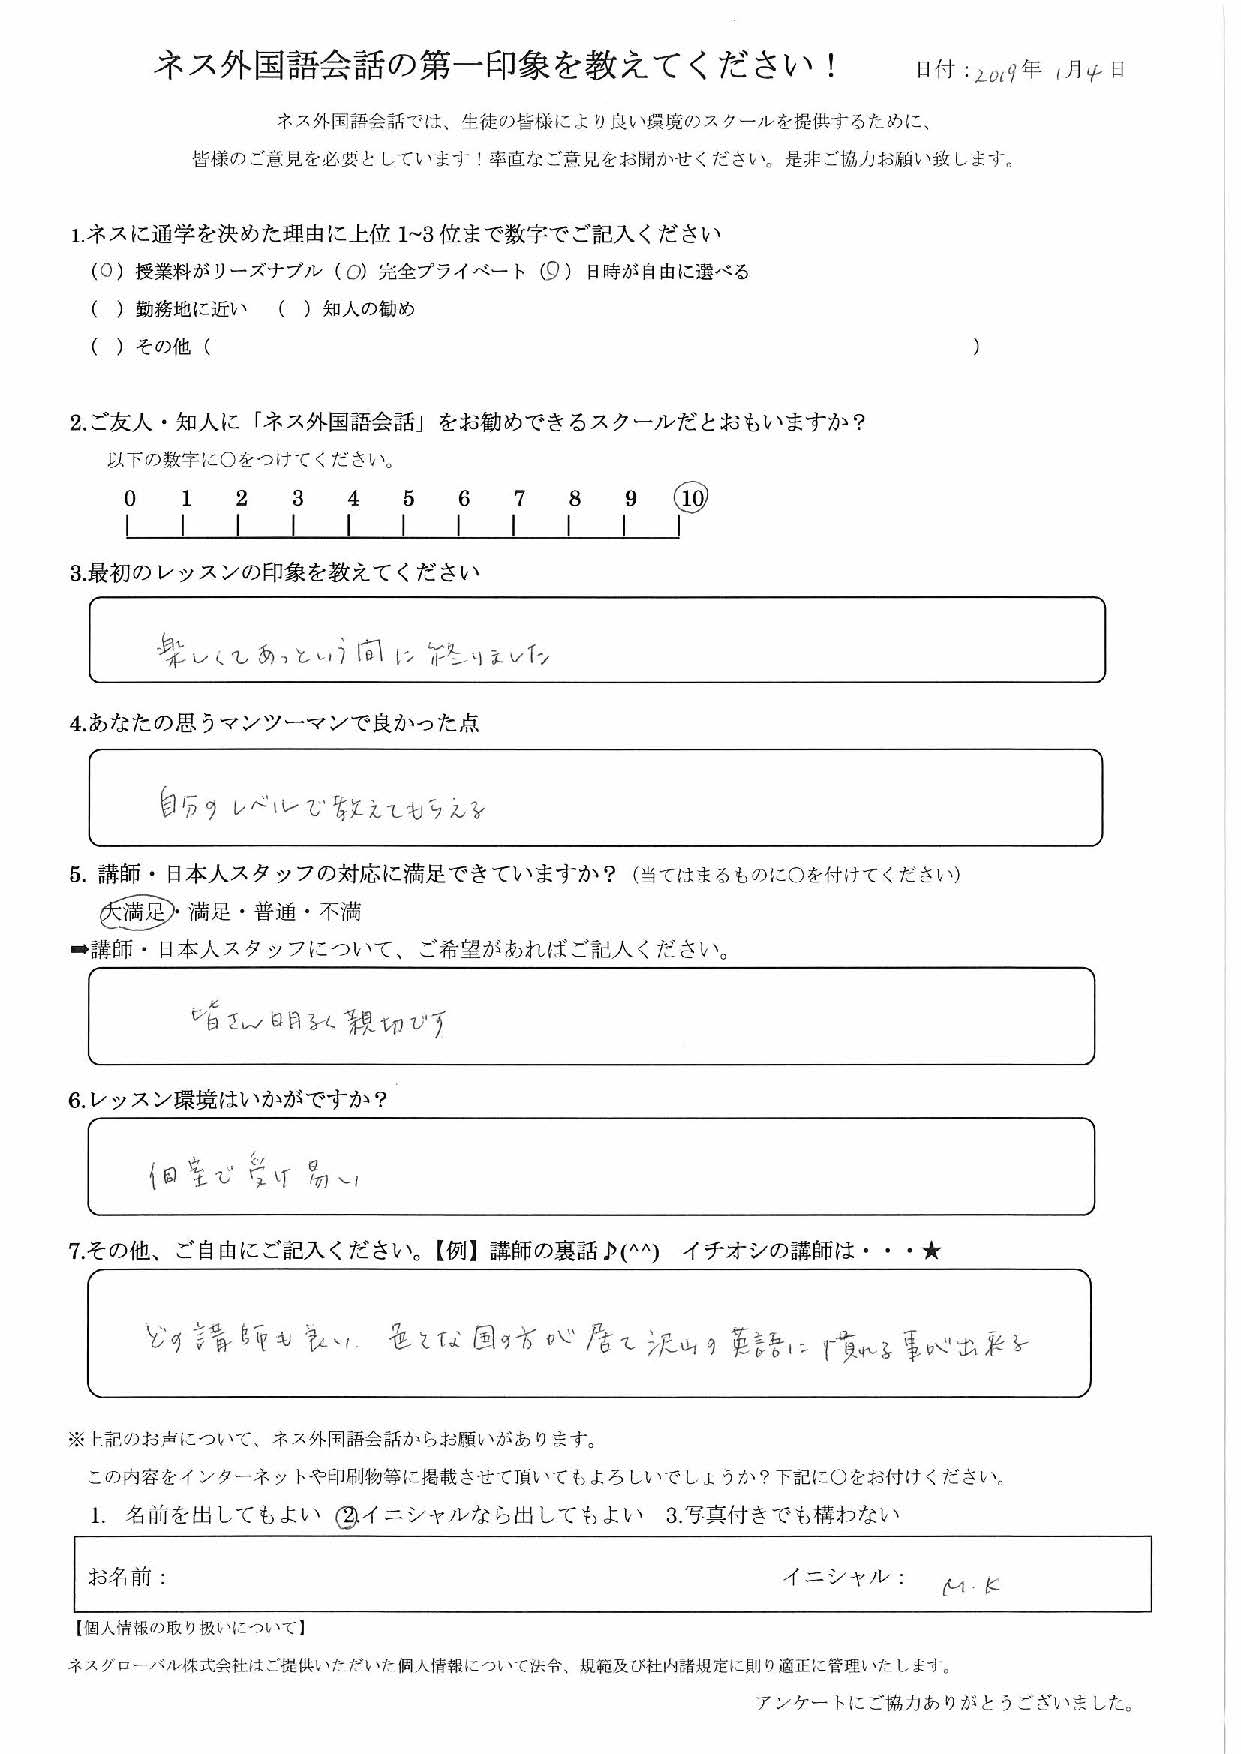 ネス外国語会話の第一印象を教えてください！
日付：2019年 1月4日
ネス外国語会話では、生徒の皆様により良い環境のスクールを提供するために、
皆様のご意見を必要としています！率直なご意見をお聞かせください。是非ご協力お願い致します。
1.ネスに通学を決めた理由に上位 1~3 位まで数字でご記入ください
（○）授業料がリーズナブル（○）完全プライベート（○）日時が自由に選べる
（ ）勤務地に近い （ ）知人の勧め
（ ）その他（ ）
2.ご友人・知人に「ネス外国語会話」をお勧めできるスクールだとおもいますか？
以下の数字に○をつけてください。
0 1 2 3 4 5 6 7 8 9 10
3.最初のレッスンの印象を教えてください
楽しくてあっという間に終りました
4.あなたの思うマンツーマンで良かった点
自分のレベルで教えてもらえる
5. 講師・日本人スタッフの対応に満足できていますか？（当てはまるものに○を付けてください）
大満足・満足・普通・不満
➡講師・日本人スタッフについて、ご希望があればご記入ください。
皆さん明るく親切です
6.レッスン環境はいかがですか？
個室で受け易い
7.その他、ご自由にご記入ください。【例】講師の裏話♪(^^)　イチオシの講師は・・・★
どの講師も良い、色々な国の方が居て沢山の英語に慣れる事が出来る
※上記のお声について、ネス外国語会話からお願いがあります。
この内容をインターネットや印刷物等に掲載させて頂いてもよろしいでしょうか？下記に○をお付けください。
1. 名前を出してもよい 2.イニシャルなら出してもよい 3.写真付きでも構わない
お名前： イニシャル： M.K
【個人情報の取り扱いについて】
ネスグローバル株式会社はご提供いただいた個人情報について法令、規範及び社内諸規定に則り適正に管理いたします。
アンケートにご協力ありがとうございました。